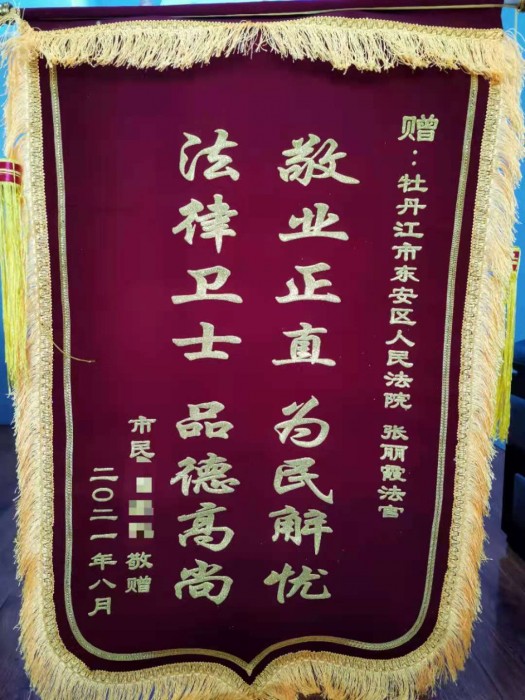 赠：牡丹江市东安区人民法院 张丽霞法官
敬业正直 为民解忧
法律卫士 品德高尚
市民 敬赠
二〇二一年八月